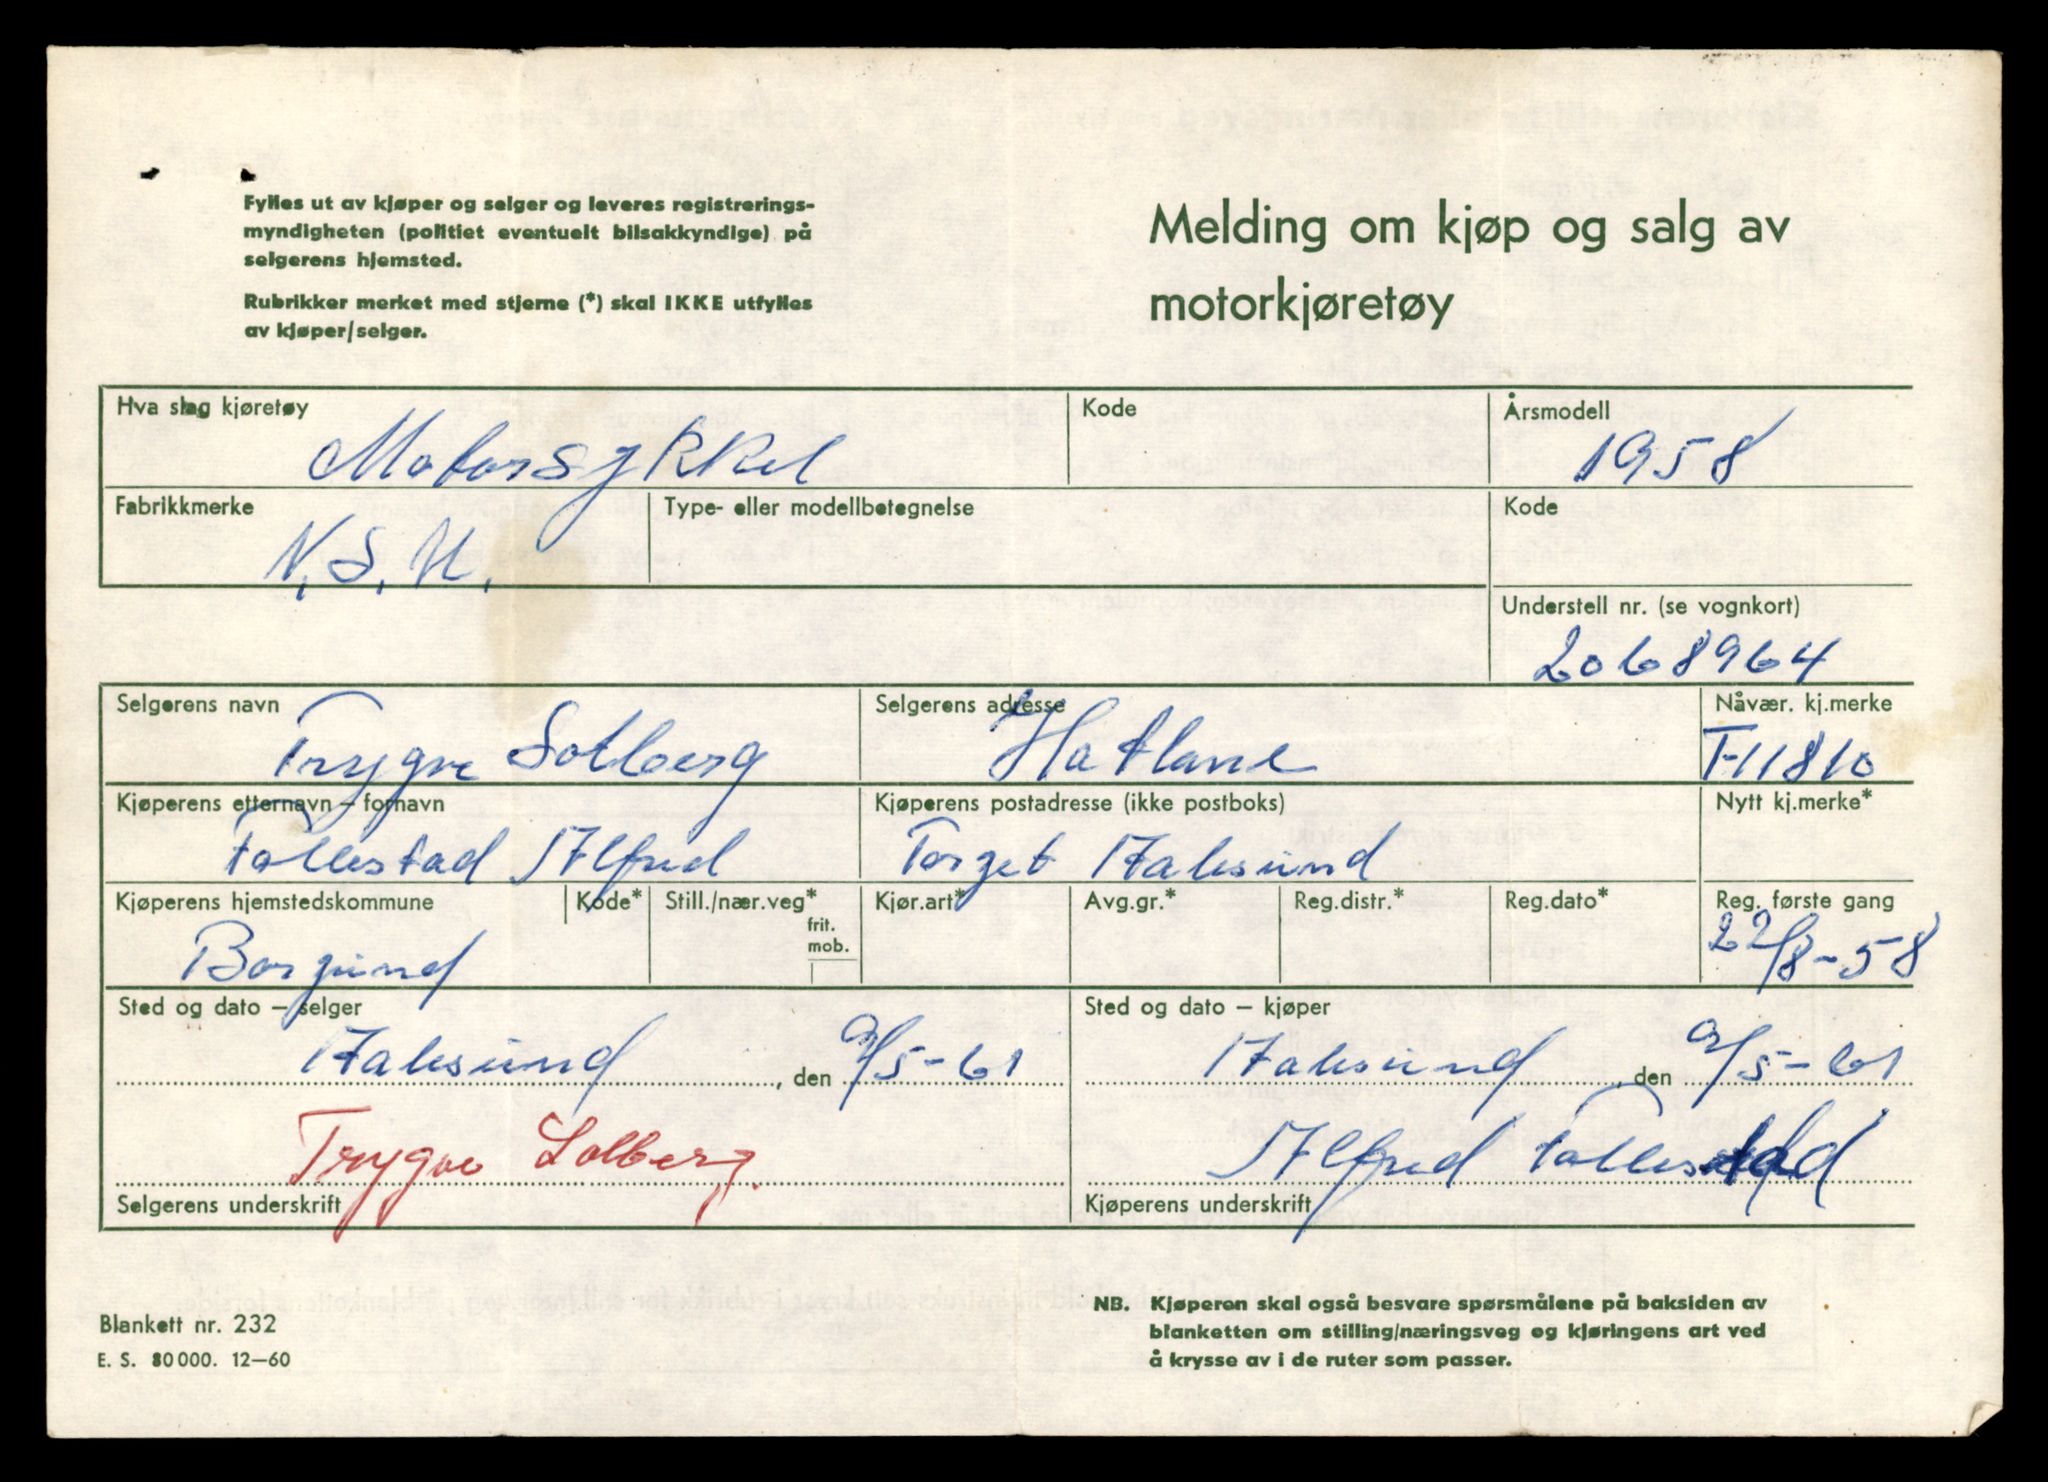 Fylles ut av kjøper og selger og leveres registrerings-
myndigheten (politiet eventuelt bilsakkyndige) på
selgerens hjemsted.
Rubrikker merket med stjerne (*) skal IKKE utfylles
av kjøper/selger.
Melding om kjøp og salg av
motorkjøretøy
Hva slag kjøretøy Kode Årsmodell
Motorsykkel 1958
Fabrikkmerke Type- eller modellbetegnelse Kode
N.S.U.
Understell nr. (se vognkort)
2068964
Selgerens navn Selgerens adresse Nåvær. kj.merke
Trygve Solberg Hatlane T-11810
Kjøperens etternavn – fornavn Kjøperens postadresse (ikke postboks) Nytt kj.merke*
Follestad Alfred Torget Aalesund
Kjøperens hjemstedskommune Kode* Still./nær.veg* Kjør.art* Avg.gr.* Reg.distr.* Reg.dato* Reg. første gang
frit.
mob.
Borgund 22/8-58
Sted og dato – selger Sted og dato – kjøper
Aalesund, den 9/5-61 Aalesund, den 9/5-61
Trygve Solberg. Alfred Follestad
Selgerens underskrift Kjøperens underskrift
Blankett nr. 232
E. S. 80000. 12–60
NB. Kjøperen skal også besvare spørsmålene på baksiden av
blanketten om stilling/næringsveg og kjøringens art ved
å krysse av i de ruter som passer.